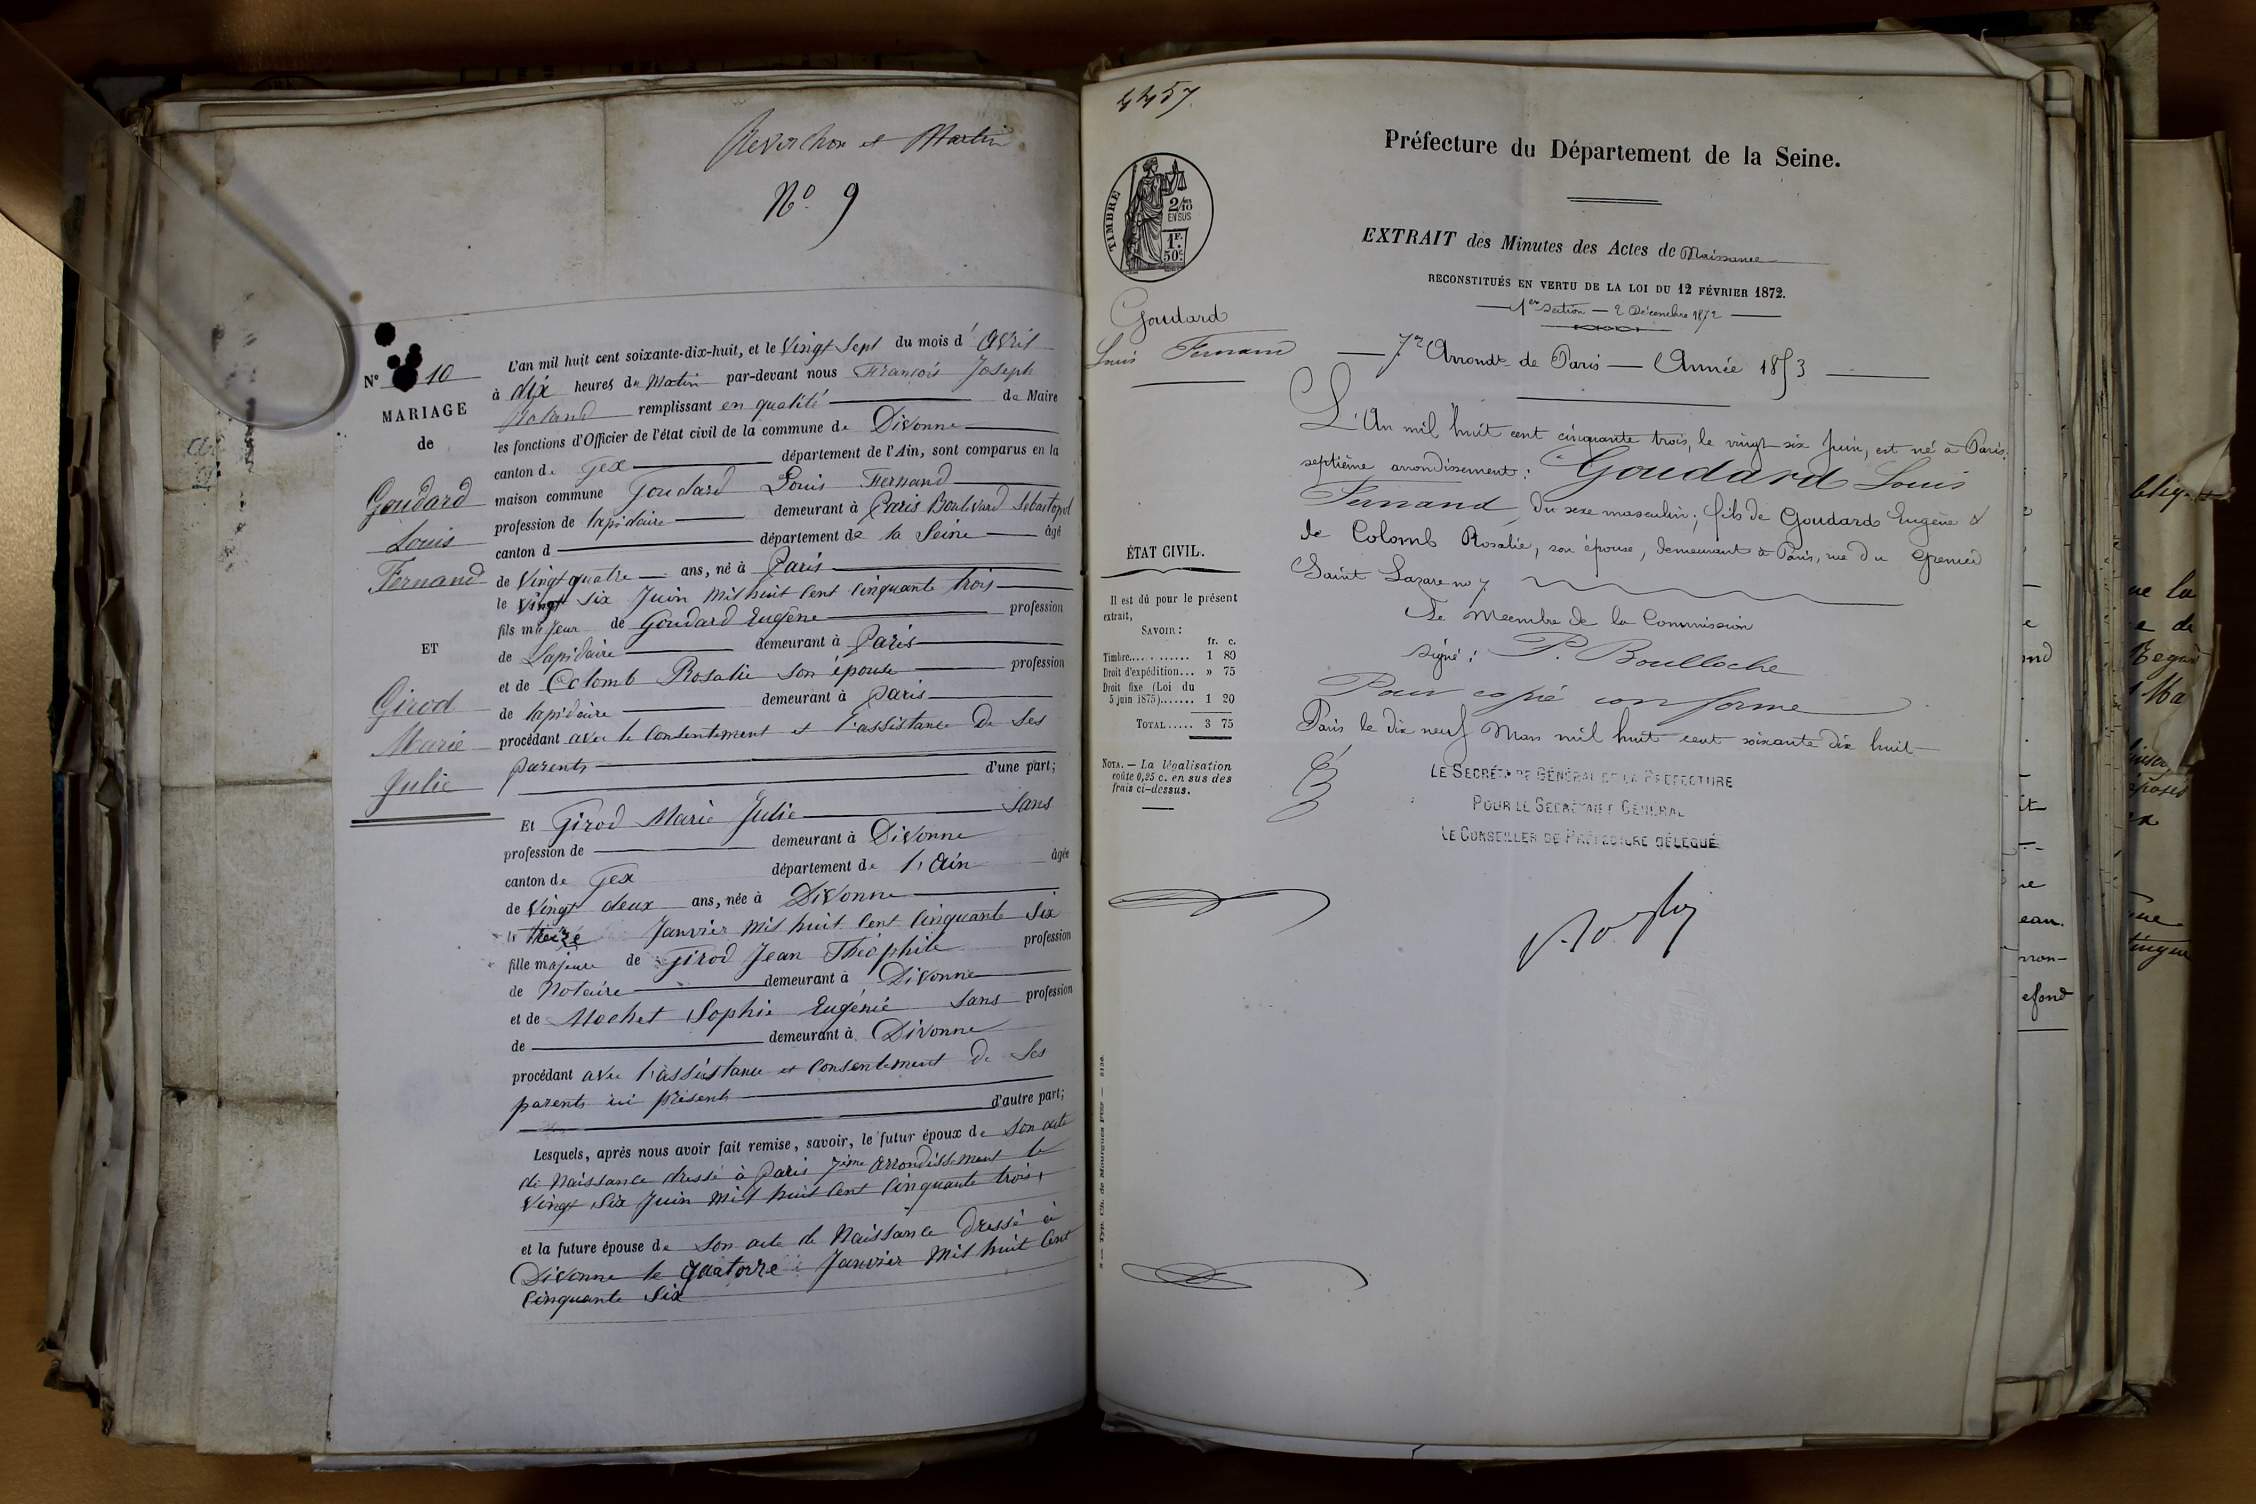 Reverchon et Martin
No. 9
N° 10
MARIAGE
de
Goudard
Louis
Fernand
ET
Girod
Marie
Julie
L'an mil huit cent soixante-dix-huit, et le Vingt Sept du mois d'Avril
à dix heures du Matin par-devant nous François Joseph
Roland remplissant en qualité de Maire
les fonctions d'Officier de l'état civil de la commune de Divonne
canton de Gex département de l'Ain, sont comparus en la
maison commune Goudard Louis Fernand
profession de lapidaire demeurant à Paris Boulevard Sébastopol
canton d département de la Seine âgé
de Vingt quatre ans, né à Paris
le Vingt Six Juin Mil huit Cent Cinquante trois
fils majeur de Goudard Eugène profession
de Lapidaire demeurant à Paris
et de Colomb Rosalie son épouse profession
de lapidaire demeurant à Paris
procédant avec le Consentement et l'assistance de Ses
parents d'une part;
Et Girod Marie Julie Sans
profession de demeurant à Divonne
canton de Gex département de l'Ain âgée
de Vingt deux ans, née à Divonne
le treize Janvier Mil huit Cent Cinquante Six
fille majeure de Girod Jean Théophile profession
de Notaire demeurant à Divonne
et de Mochet Sophie Eugénie Sans profession
de demeurant à Divonne
procédant avec l'assistance et Consentement de Ses
parents ici présents d'autre part;
Lesquels, après nous avoir fait remise, savoir, le futur époux de Son acte
de Naissance dressé à Paris 7ème Arrondissement le
Vingt Six Juin Mil huit Cent Cinquante trois,
et la future épouse de Son acte de Naissance dressé à
Divonne le quatorze Janvier Mil huit Cent
Cinquante Six
4457
TIMBRE
2/10
EN SUS
1F.
50C.
Préfecture du Département de la Seine.
EXTRAIT des Minutes des Actes de Naissance
RECONSTITUÉS EN VERTU DE LA LOI DU 12 FÉVRIER 1872.
1ère Section — 2 Décembre 1872
Goudard
Louis Fernand
7e Arrondt de Paris — Année 1853
L'An mil huit cent cinquante trois, le vingt six Juin, est né à Paris,
septième arrondissement: Goudard Louis
Fernand, du sexe masculin; fils de Goudard Eugène &
de Colomb Rosalie, son épouse, demeurant à Paris, rue du Grenier
Saint Lazare no 7.
Le Membre de la Commission
signé: P. Boulloche
Pour copie conforme
Paris le dix neuf Mars mil huit cent soixante dix huit
LE SECRÉTAIRE GÉNÉRAL DE LA PRÉFECTURE
POUR LE SECRÉTAIRE GÉNÉRAL
LE CONSEILLER DE PRÉFECTURE DÉLÉGUÉ
ÉTAT CIVIL.
Il est dû pour le présent
extrait,
SAVOIR:
fr. c.
Timbre........... 1 80
Droit d'expédition... » 75
Droit fixe (Loi du
5 juin 1875)....... 1 20
TOTAL..... 3 75
NOTA. — La légalisation
coûte 0,25 c. en sus des
frais ci-dessus.